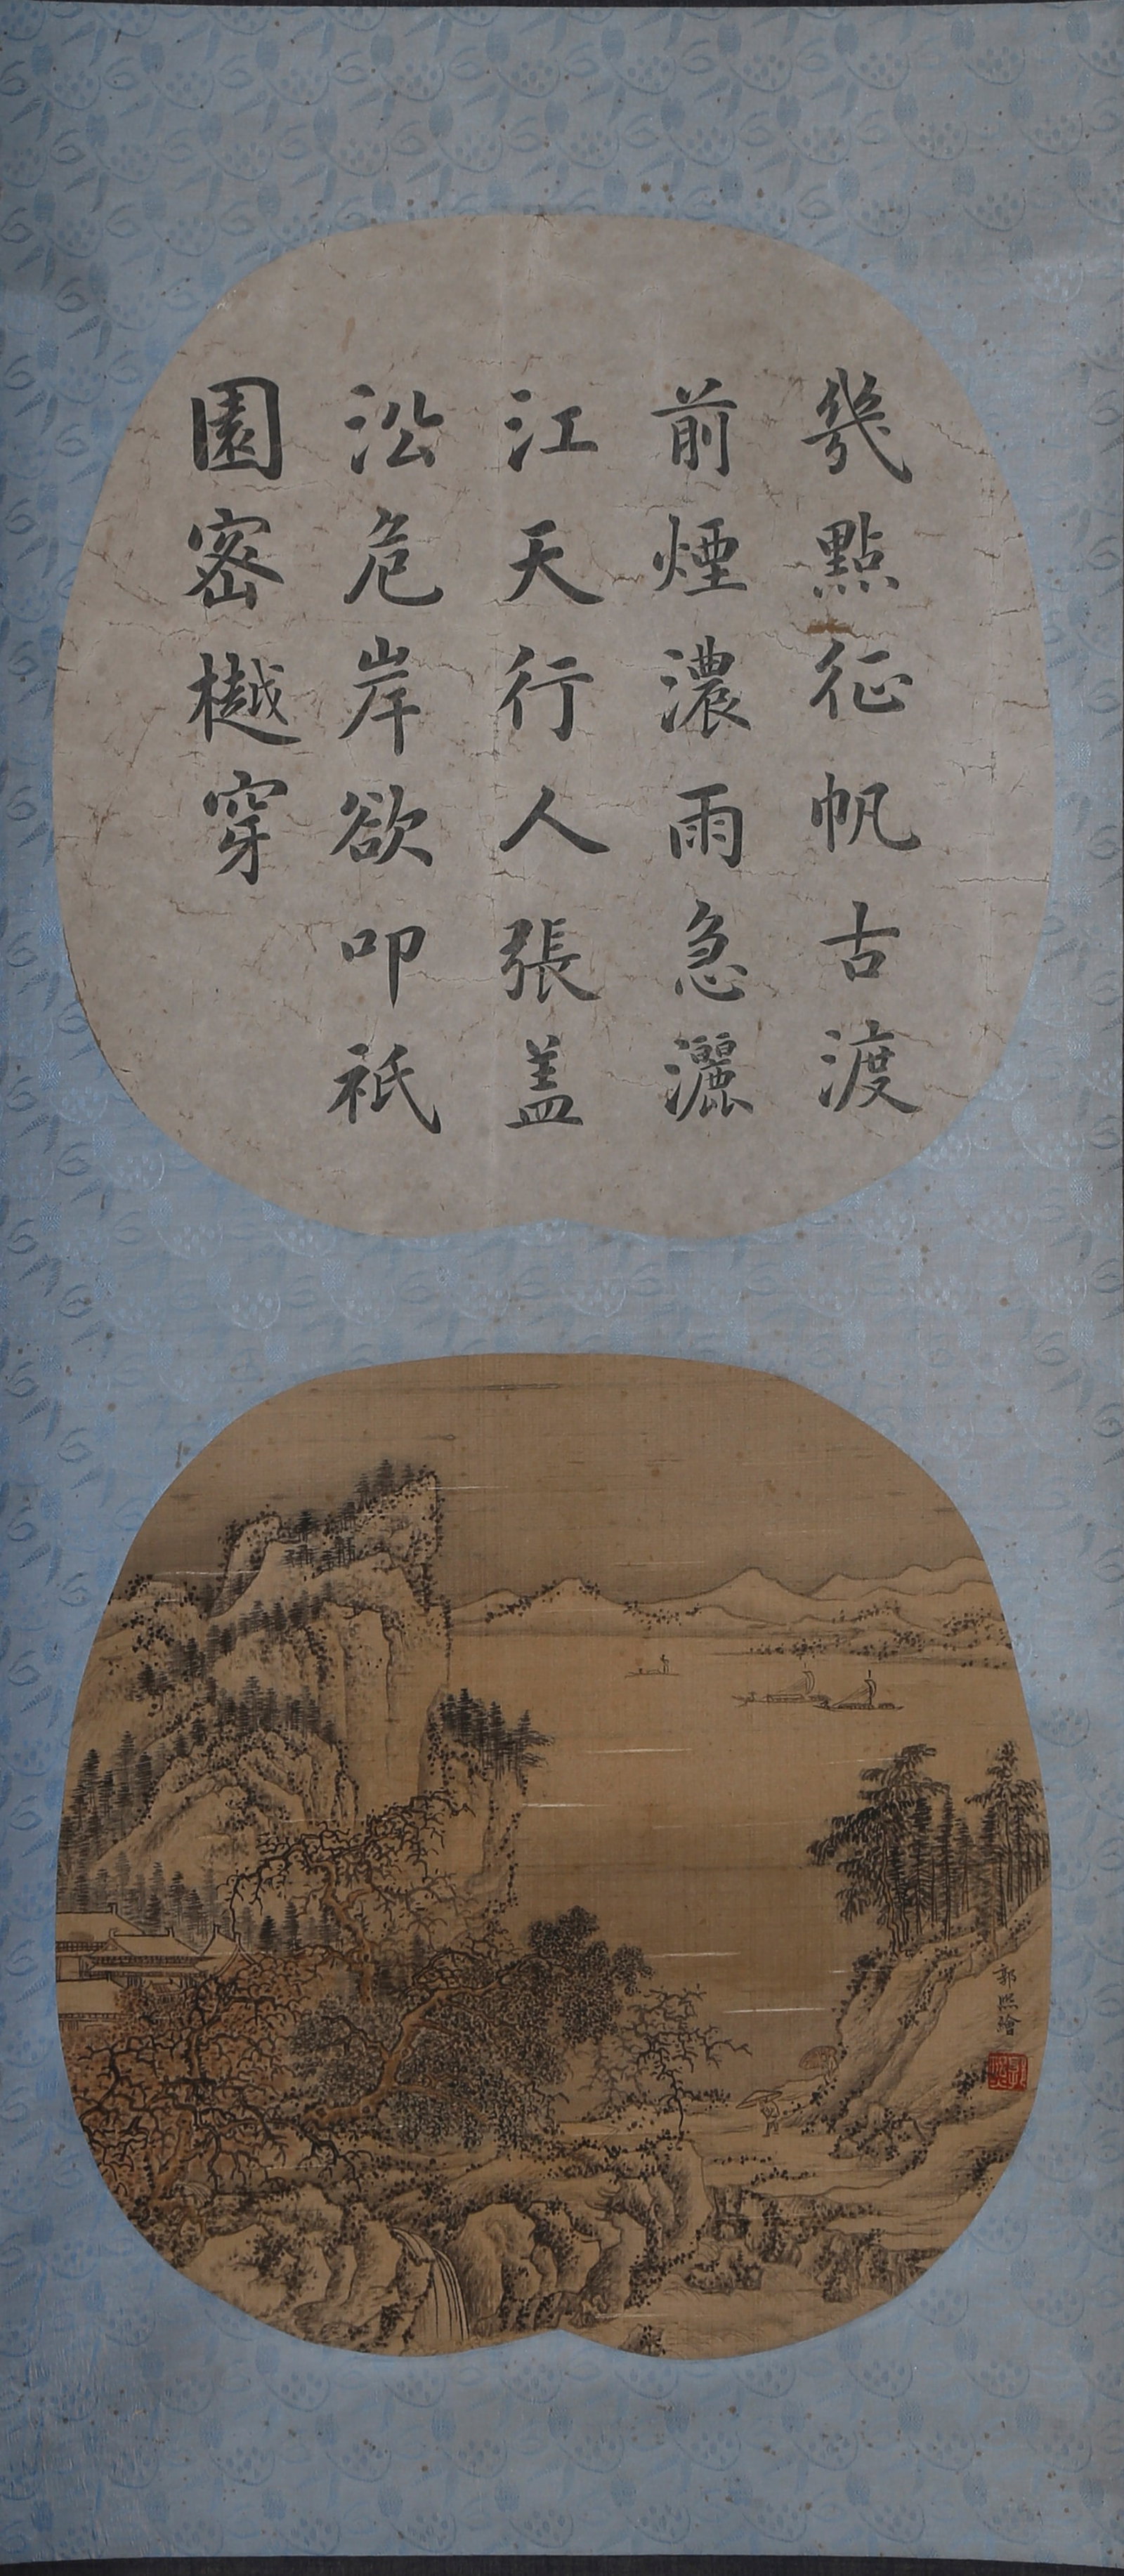 幾點征帆古渡
前煙濃雨急灑
江天行人張盖
沿危岸欲叩祇
園密樾穿
郭熙繪